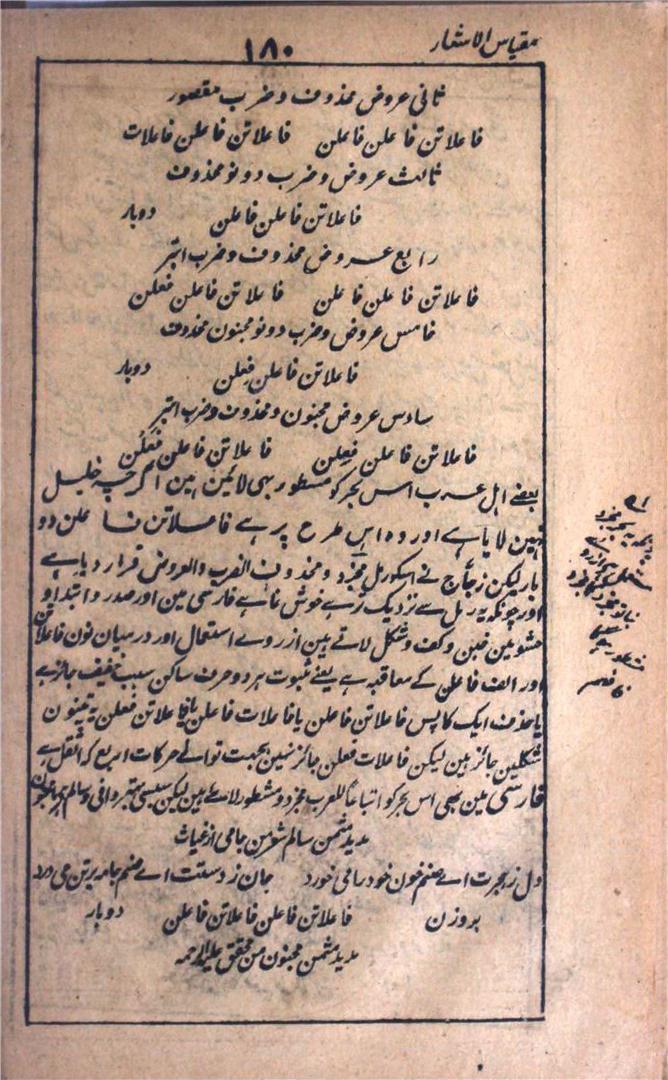 مقیاس الاشعار
۱۸۰
ثانی عروض محذوف و ضرب مقصور
فاعلاتن فاعلن فاعلن فاعلاتن فاعلن فاعلات
ثالث عروض و ضرب دونو محذوف
فاعلاتن فاعلن فاعلن دوبار
رابع عروض محذوف و ضرب ابتر
فاعلاتن فاعلن فاعلن فاعلاتن فاعلن فعلن
خامس عروض و ضرب دونو مخبون محذوف
فاعلاتن فاعلن فعلن دوبار
سادس عروض مخبون و محذوف و ضرب ابتر
فاعلاتن فاعلن فعلن فاعلاتن فاعلن فعلن
بعضے اہل عرب اس بحر کو مشطور بہی لائے ہین اگرچہ خلیل
نہین لایا ہے اور وہ اس طرح پر ہے فاعلاتن فاعلن دو
بار لیکن زجاج نے اسکو رمل مجزو و محذوف الضرب والعروض قرار دیا ہے
اور چونکہ یہ رمل سے نزدیک تر ہے خوش نما ہے فارسی مین اور صدر و ابتدا و
حشو مین خبن و کف و شکل لاتے ہین از روے استعمال اور درمیان نون فاعلاتن
اور الف فاعلن کے معاقبہ ہے یعنے ثبوت ہر دو حرف ساکن سبب خفیف جائز ہے
یا حذف ایک کا پس فاعلاتن فاعلن یا فاعلات فاعلن یا فاعلاتن فعلن یہ تینون
شکلین جائز ہین لیکن فاعلات فعلن جائز نہین بجہت توالے حرکات اربع کہ اثقل ہے
فارسی مین بھی اس بحر کو اتباعاً للعرب مجزو و مشطور لائے ہین لیکن وافی و سالم
مدید مثمن سالم شعر من جامی از غیاث
دل ز ہجرت اے صنم خون خود را می خورد جان ز دستت اے صنم جامہ بر تن می درد
بروزن فاعلاتن فاعلن فاعلاتن فاعلن دوبار
مدید مثمن مخبون من محقق علیہ الرحمہ